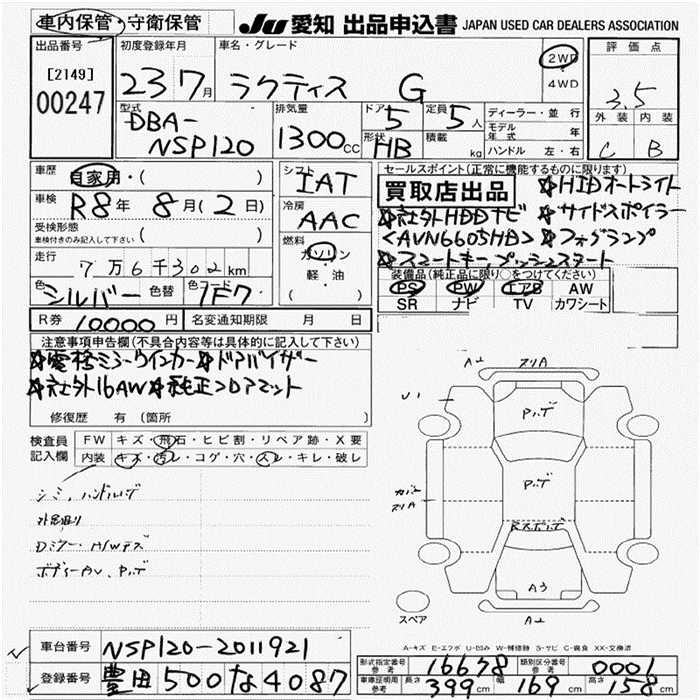 車内保管・守衛保管 JU 愛知 出品申込書 JAPAN USED CAR DEALERS ASSOCIATION
出品番号 初度登録年月 車名・グレード 評価点
[2149] 00247 23 7月 ラクティス G 2WD・4WD 3.5
型式 排気量 ドア 定員 ディーラー・並行 外装 内装
DBA-NSP120 1300cc 5 5人 モデル年式 年 C B
形状 HB 積載 kg ハンドル 左・右
車歴 自家用・( ) シフト IAT セールスポイント(正常に機能するものに限ります)
車検 R8年 8月(2日) 冷房 AAC 買取店出品 ☆HIDオートライト
☆社外HDDナビ ☆サイドスポイラー
受検形態 車検付きのみ記入して下さい ( ) 燃料 <AVN6605HD> ☆フォグランプ
走行 7万6千302km ガソリン・軽・油 ☆スマートキープッシュスタート
色 シルバー 色替 色コード 1F7 装備品(純正品に限り○をつけてください)
PS PW エアB AW
SR ナビ TV カワシート
R券 10000円 名変通知期限 月 日
注意事項申告欄(不具合内容等は具体的に記入して下さい)
☆電格ミラーウインカー☆ドアバイザー
☆社外16AW☆純正フロアマット
修復歴 有(箇所
検査員記入欄 FW キズ・飛石・ヒビ割・リペア跡・X要
内装 キズ・汚レ・コゲ・穴・スレ・キレ・破レ
シミ、ハンドルハゲ
Dミラー・A/Wキズ
A2 スリA
U1
P.ハゲ
P.ハゲ
A3
A2
スペア
A-キズ E-エクボ U-凹み W-補修跡 S-サビ C-腐食 XX-交換済
車台番号 NSP120-2011921
登録番号 豊田 500 な 4087
型式指定番号 参考 16678 類別区分番号 参考 0001
車庫証明用 参考 長さ 399cm 幅 169cm 高さ 158cm